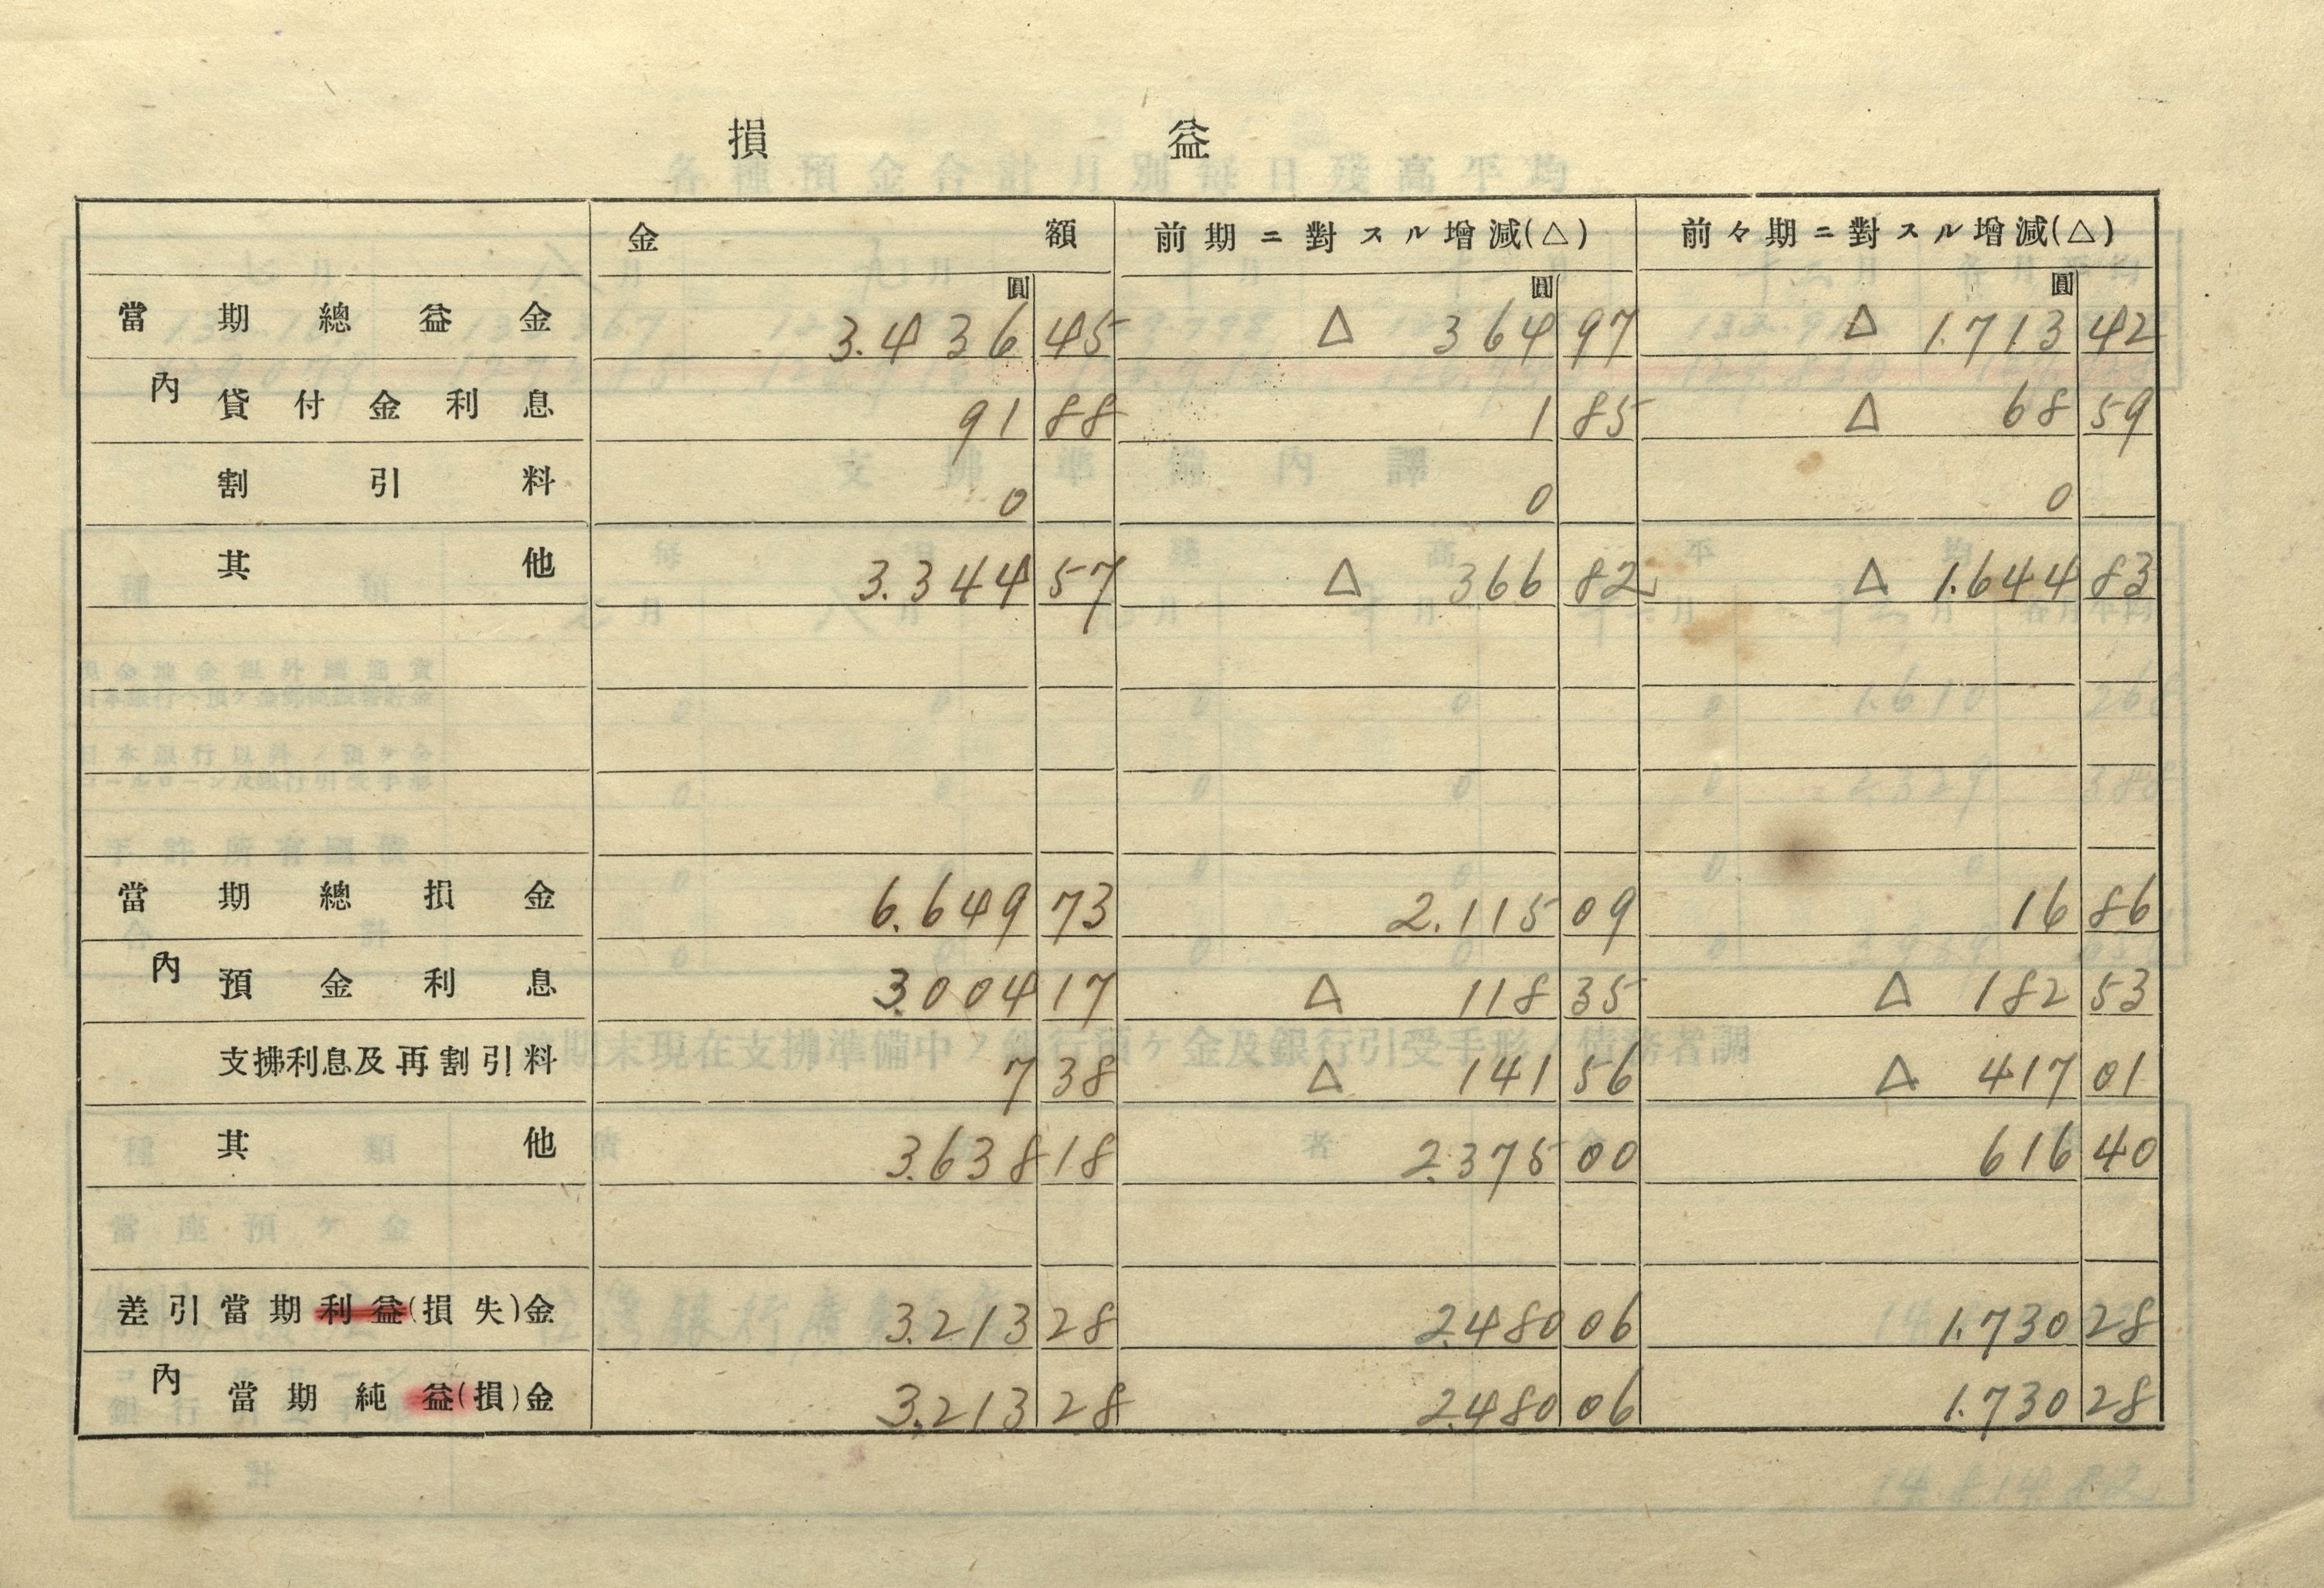 損益
金額 前期ニ對スル增減(△) 前々期ニ對スル增減(△)
圓 圓 圓
當期總益金 3.436 45 △ 364 97 △ 1.713 42
內 貸付金利息 91 88 1 85 △ 68 59
割引料 0 0 0
其他 3.344 57 △ 366 82 △ 1.644 83
當期總損金 6.649 73 2.115 09 16 86
內 預金利息 3.004 17 △ 118 35 △ 182 53
支拂利息及再割引料 7 38 △ 141 56 △ 417 01
其他 3.638 18 2.375 00 616 40
差引當期利益(損失)金 3.213 28 2.480 06 1.730 28
內 當期純益(損)金 3.213 28 2.480 06 1.730 28